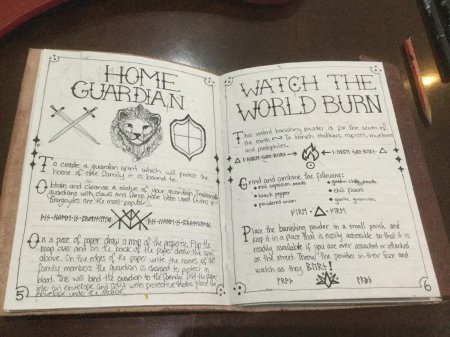 HOME
GUARDIAN
To create a guardian spirit which will protect the
home of the family it is bound to.
Obtain and cleanse a statue of your guardian. Traditionally
guardians with claws and fangs have been used. Lions &
gargoyles are the most popular.
On a piece of paper draw a map of the property. Flip the
map over and on the back of the paper draw the
above. On the edges of the paper write the names of all
family members the guardian is charged to protect in
blood. This will bind the guardian to the family. Put the paper
into an envelope and with protective place the
envelope under the statue.
5
WATCH THE
WORLD BURN
This violent banishing powder is for the scum of
the earth to banish stalkers, rapists, murderers
and pedophiles.
Grind and combine the following:
• red capsicum seeds
• black pepper
• powdered onion
• chili flakes
• garlic granules
Place the banishing powder in a small pouch, and
keep it in a place that is easily accessible so that it is
readily available if you are ever assaulted or attacked
on the street. Throw the powder in their face and
watch as they BURN!
6